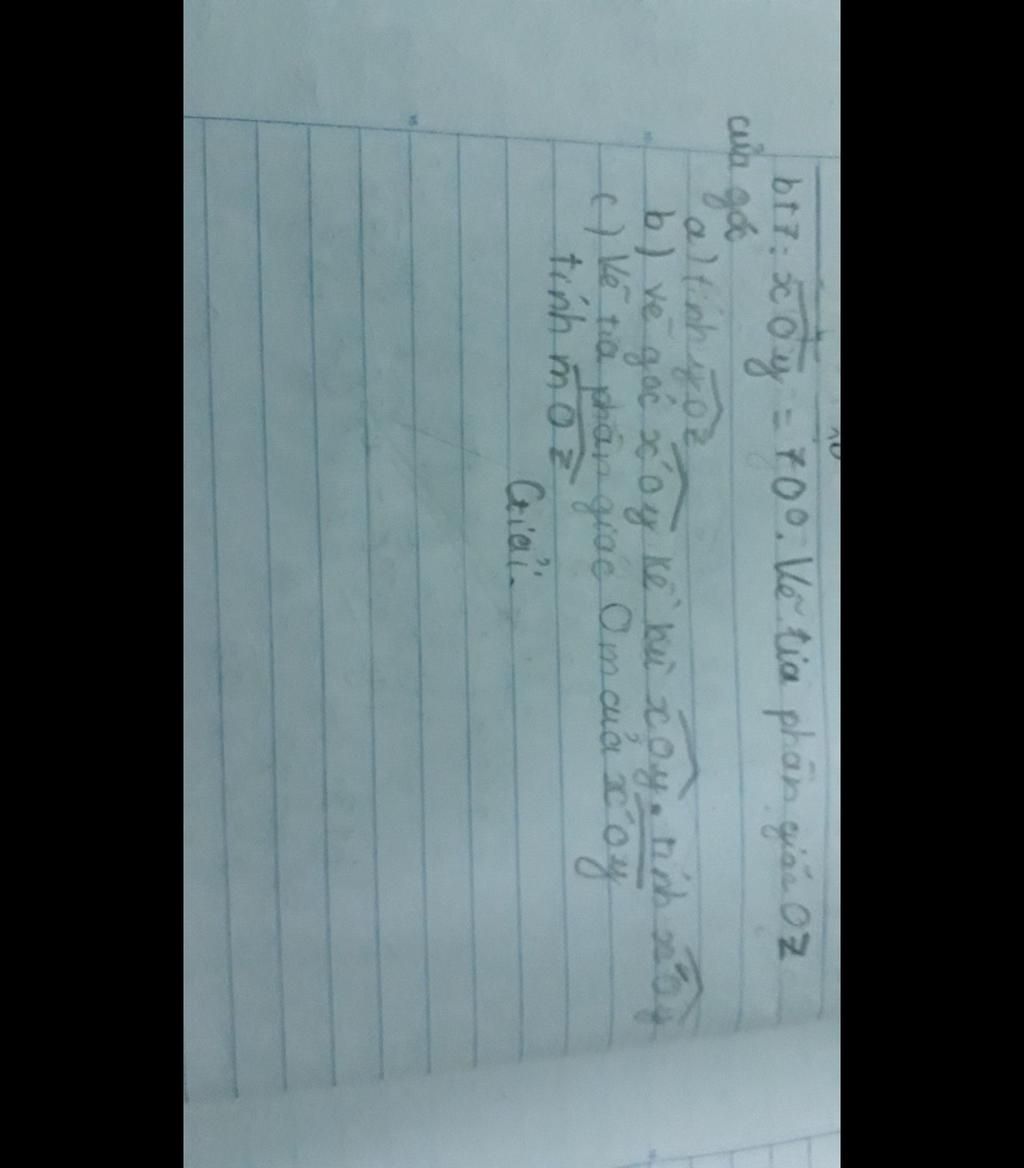 bt7: xOy = 70°. Vẽ tia phân giác Oz
của góc
a) tính yOz
b) vẽ góc x'Oy kề bù xOy. tính x'Oy
c) Vẽ tia phân giác Om của x'Oy
tính mOz
Giải.